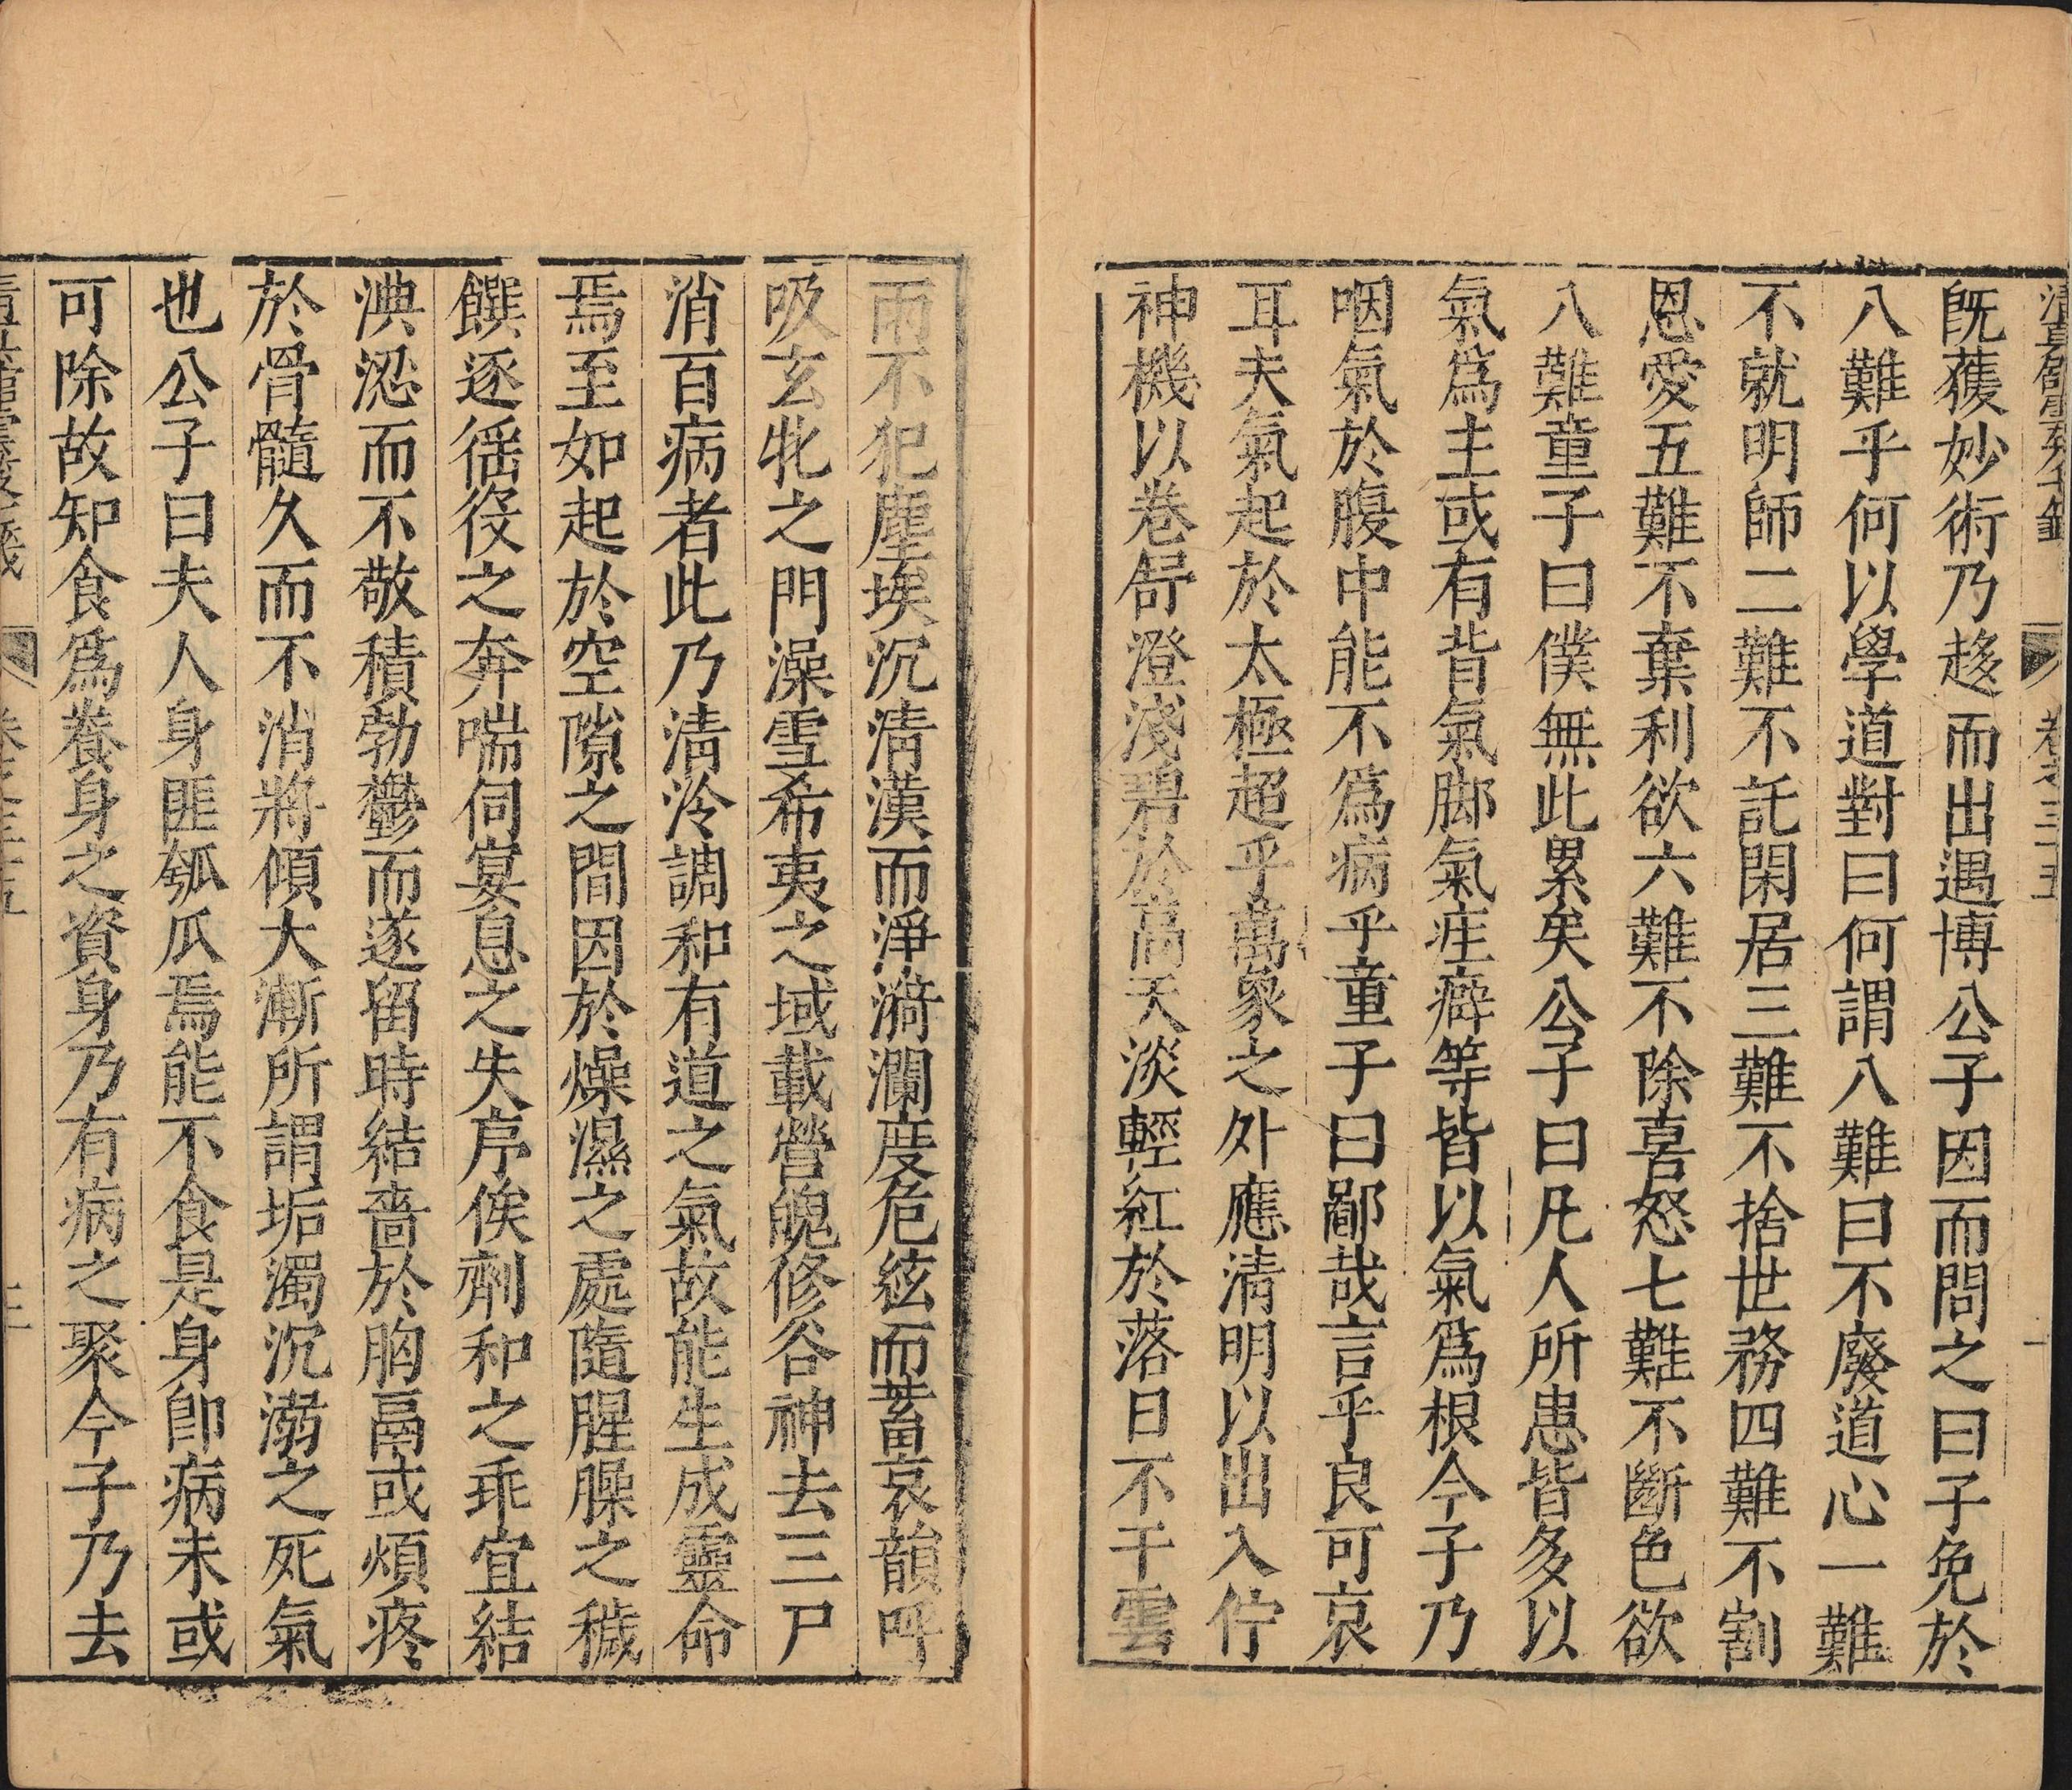 既獲妙術乃趍而出遇博公子因而問之曰子免於
八難乎何以學道對曰何謂八難曰不廢道心一難
不就明師二難不託閑居三難不捨世務四難不割
恩愛五難不棄利欲六難不除喜怒七難不斷色欲
八難童子曰僕無此累矣公子曰凡人所患皆多以
氣爲主或有背氣脚氣疰癖等皆以氣爲根今子乃
咽氣於腹中能不爲病乎童子曰鄙哉言乎良可哀
耳夫氣起於太極超乎萬象之外應清明以出入佇
神機以卷舒澄淺碧於高天淡輕紅於落日不干雲
雨不犯塵埃沉清漢而淨漪瀾度危絃而蓄哀韻呼
吸玄牝之門澡雪希夷之域載營魄修谷神去三尸
消百病者此乃清泠調和有道之氣故能生成靈命
焉至如起於空隙之間因於燥濕之處隨腥臊之穢
饌逐徭役之奔喘伺宴息之失序俟劑和之乖宜結
㳿涊而不敬積勃鬱而遂留時結嗇於胸鬲或煩疼
於骨髓久而不消將傾大漸所謂垢濁沉溺之死氣
也公子曰夫人身匪瓠瓜焉能不食是身卽病未或
可除故知食爲養身之資身乃有病之聚今子乃去